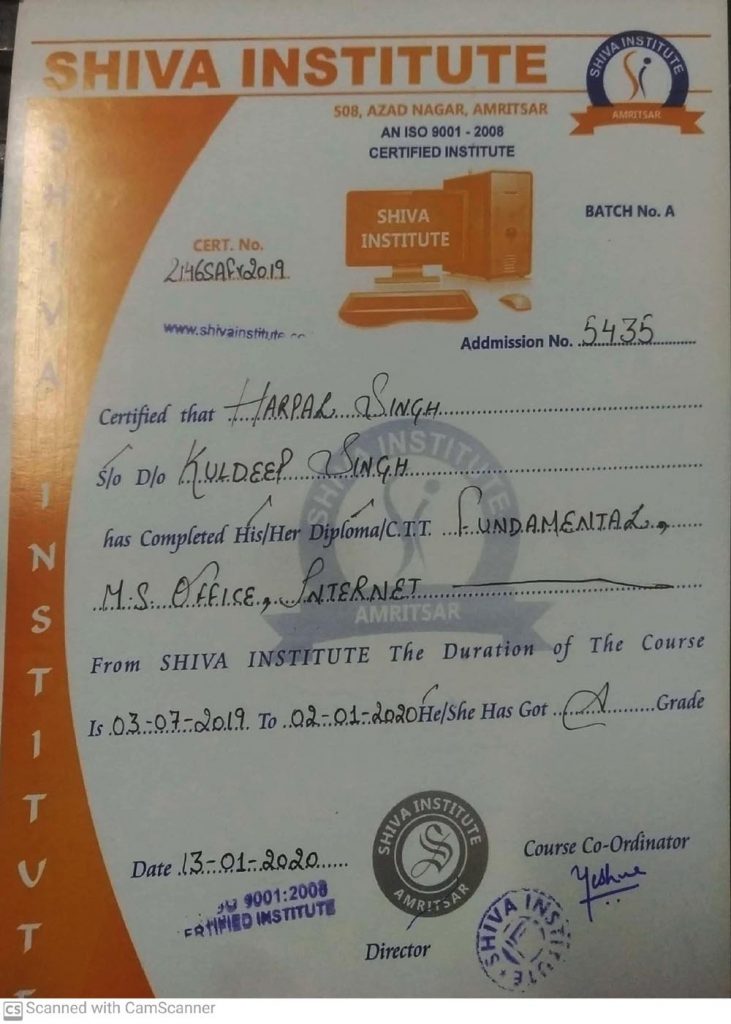 SHIVA INSTITUTE
SHIVA INSTITUTE
AMRITSAR
508, AZAD NAGAR, AMRITSAR
AN ISO 9001 - 2008
CERTIFIED INSTITUTE
SHIVA
INSTITUTE
BATCH No. A
CERT. No.
www.shivainstitute
Addmission No. 5435
Certified that HARPAL SINGH
S/o D/o KULDEEP SINGH
has Completed His/Her Diploma/C.T.T. FUNDAMENTAL,
M.S. OFFICE, INTERNET
From SHIVA INSTITUTE The Duration of The Course
Is 03-07-2019 To 02-01-2020 He/She Has Got A Grade
SHIVA INSTITUTE
AMRITSAR
SHIVA INSTITUTE
Date 13-01-2020
SHIVA INSTITUTE
S
AMRITSAR
Course Co-Ordinator
9001:2008
INSTITUTE
Director
SHIVA INSTITUTE
CS Scanned with CamScanner